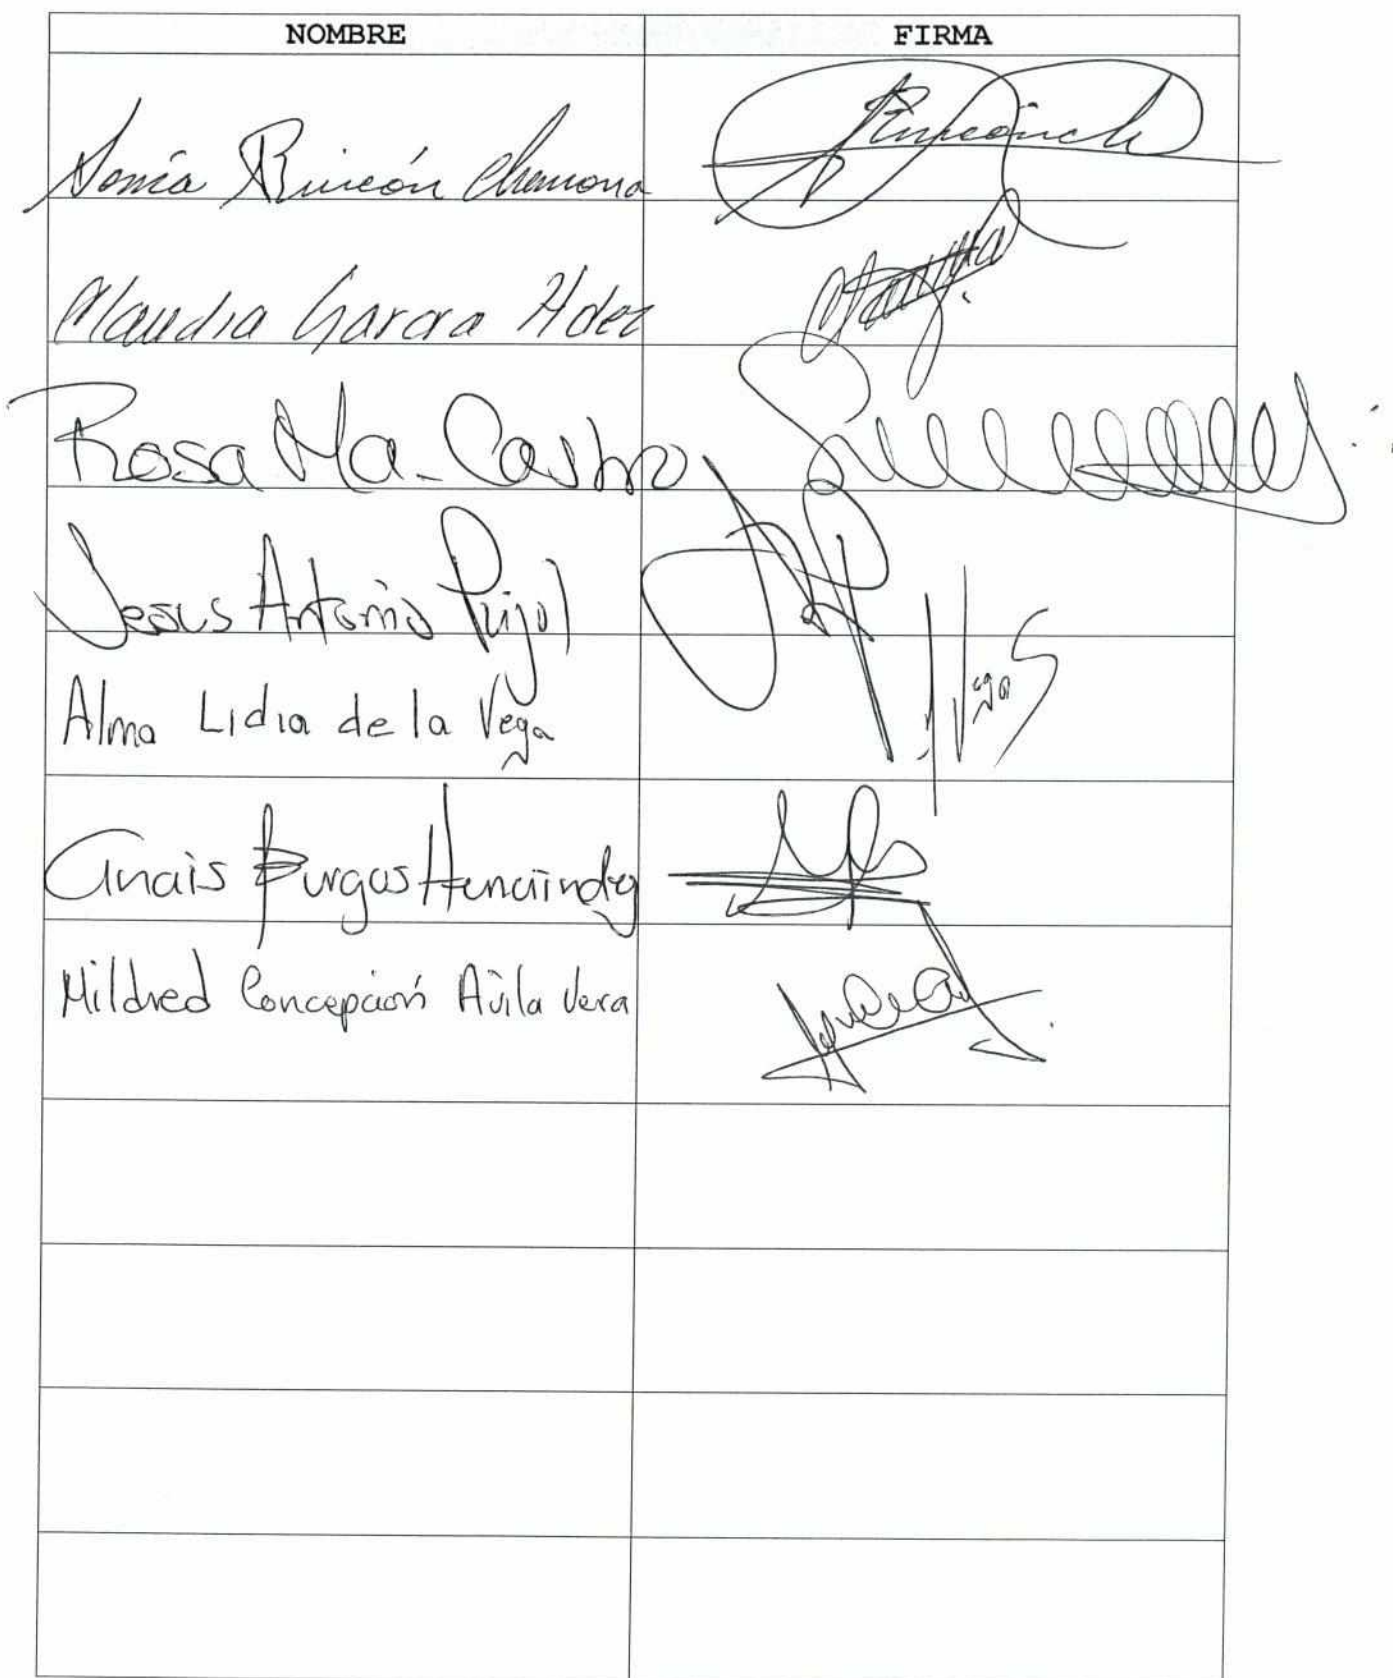 NOMBRE FIRMA
Sonia Rincón Chanona
Claudia García Hdez
Rosa Ma. Castro
Jesus Antonio Pujol
Alma Lidia de la Vega
Vega S
Anais Burgos Hernández
Mildred Concepción Ávila Vera